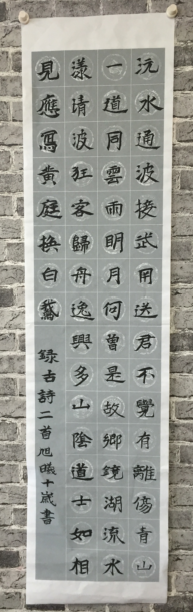 沅水通波接武岡送君不覺有離傷青山
一道同雲雨明月何曾是故鄉鏡湖流水
漾清波狂客歸舟逸興多山陰道士如相
見應寫黃庭換白鵝
錄古詩二首旭曦十歲書